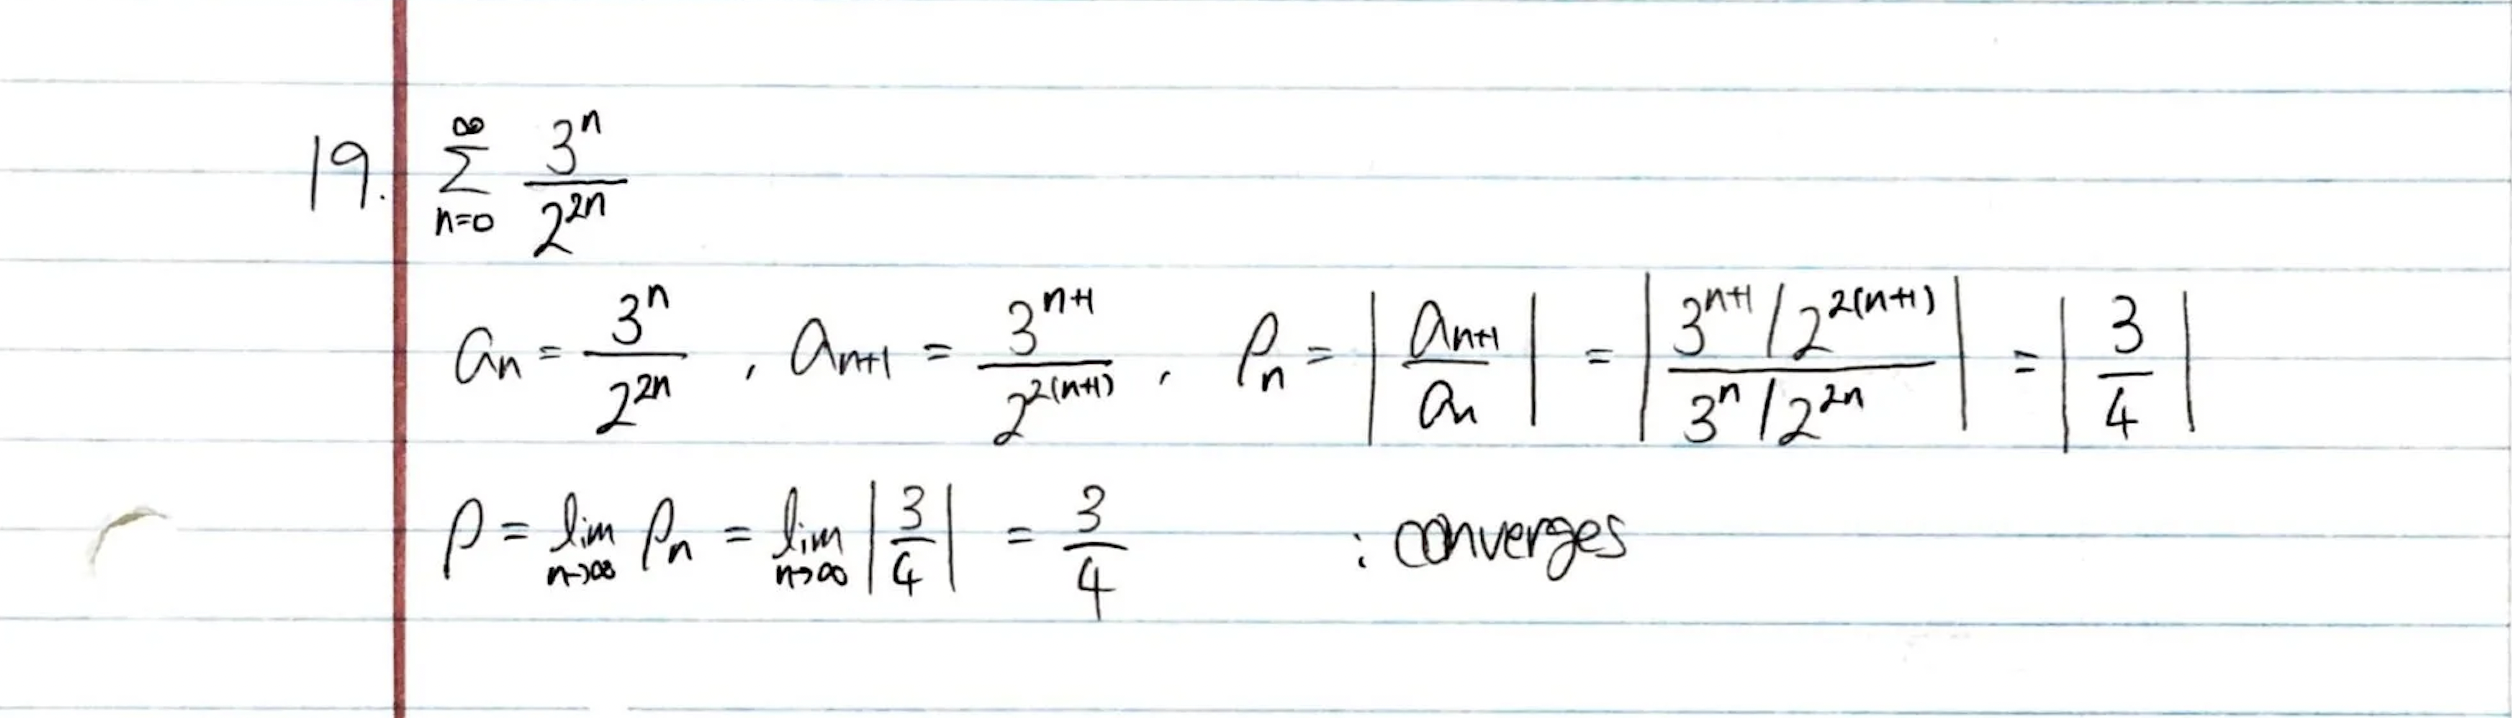 19. \sum_{n=0}^{\infty} \frac{3^n}{2^{2n}}
a_n = \frac{3^n}{2^{2n}} , a_{n+1} = \frac{3^{n+1}}{2^{2(n+1)}} , \rho_n = \left| \frac{a_{n+1}}{a_n} \right| = \left| \frac{3^{n+1} / 2^{2(n+1)}}{3^n / 2^{2n}} \right| = \left| \frac{3}{4} \right|
\rho = \lim_{n \to \infty} \rho_n = \lim_{n \to \infty} \left| \frac{3}{4} \right| = \frac{3}{4} : converges